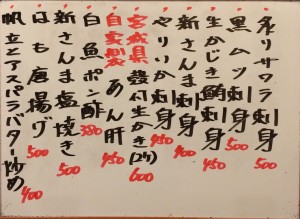 炙りサワラ刺身
黒ムツ刺身 500
生かじき鮪刺身 450
新さんま刺身 400
やりいか刺身 450
宮城県殻付生かき(2ケ) 600
自家製あん肝 450
白魚ポン酢 350
新さんま塩焼き 500
はも唐揚げ 500
帆立とアスパラバター炒め 400